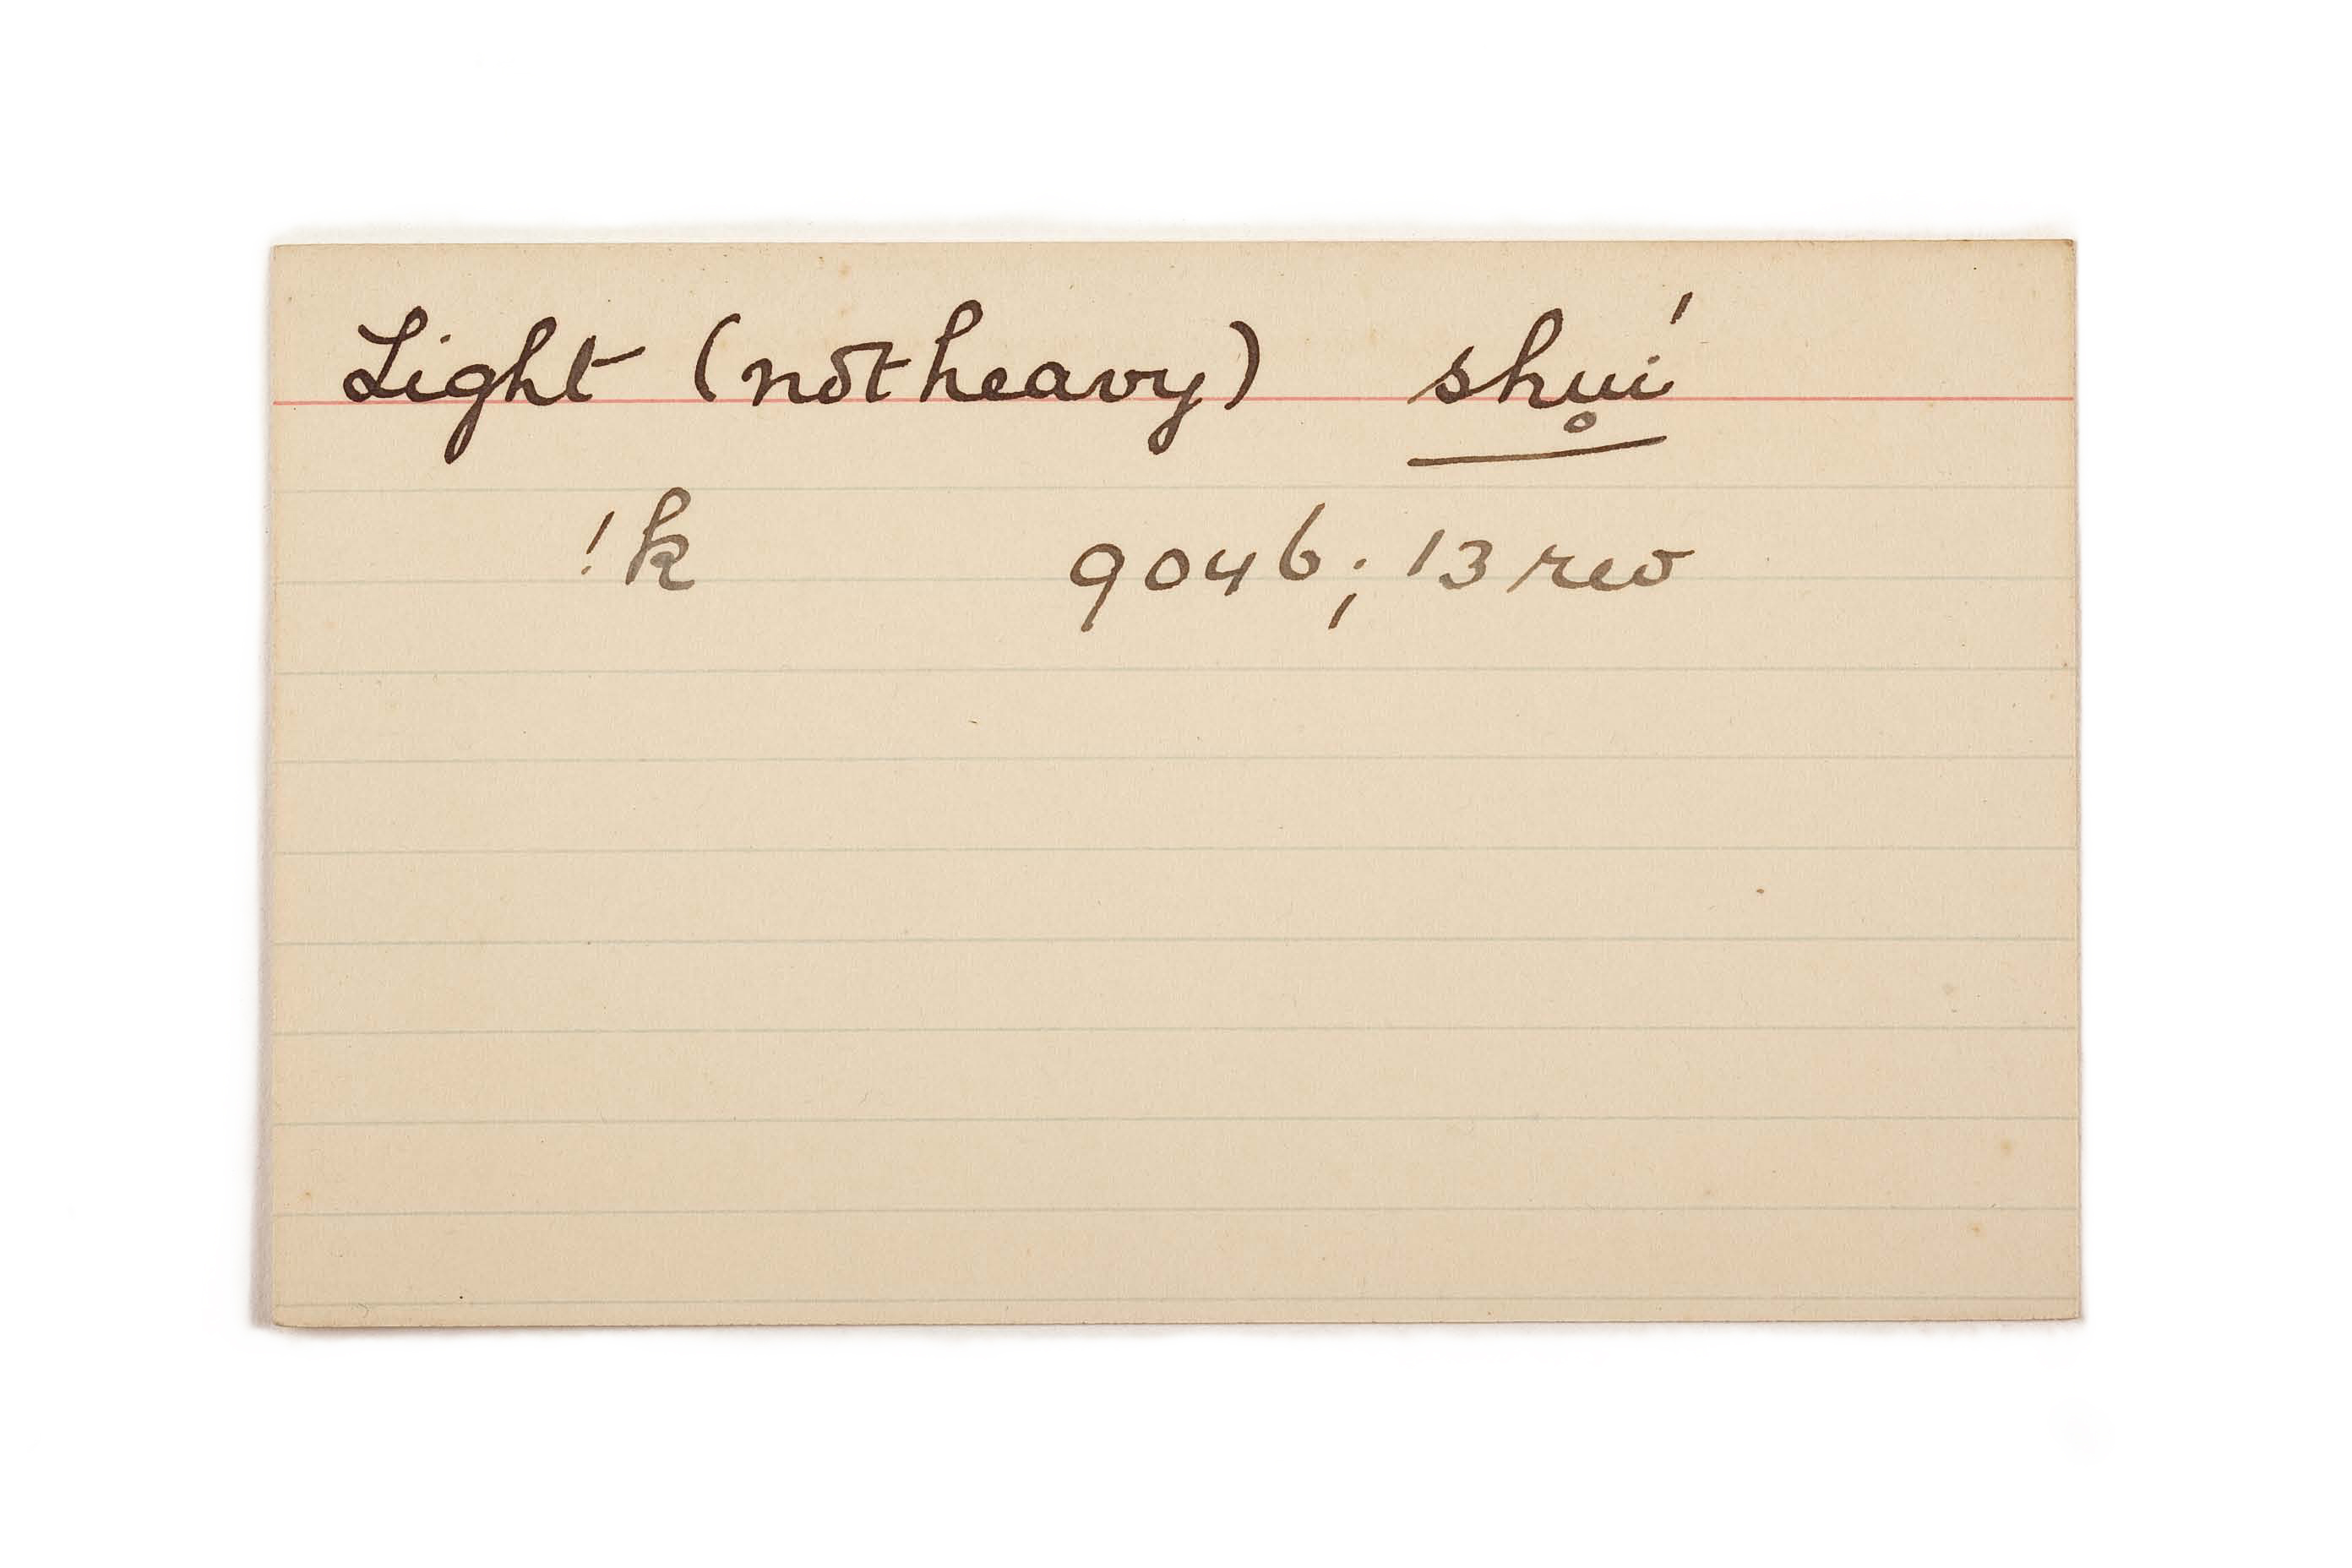 Light (not heavy) shu̥i′
!k 9046; 13 rev